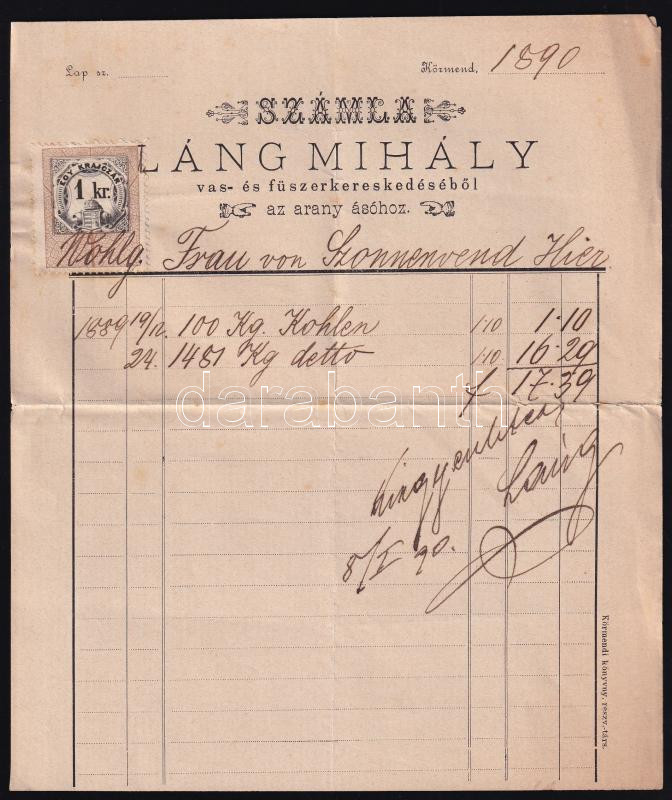 Lap sz.
Körmend, 1890
SZÁMLA
LÁNG MIHÁLY
vas- és füszerkereskedéséből
az arany ásóhoz.
EGY KRAJCZÁR
1 kr.
Wohlg. Frau von Szonnenvend Hier
1889 19/12. 100 Kg. Kohlen 1·10 1·10
24. 1481 Kg detto 1·10 16·29
f 17·39
darabanth
Láng
8/I 90.
Körmendi könyvny. részv.-társ.